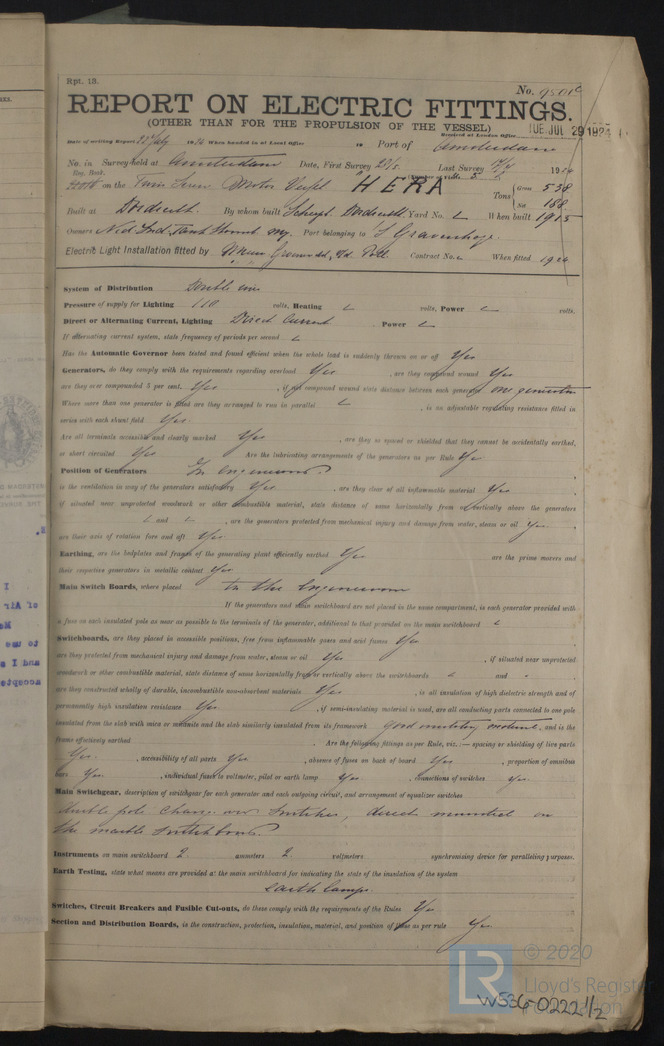 Rpt. 13.
No. 9501c
REPORT ON ELECTRIC FITTINGS.
(OTHER THAN FOR THE PROPULSION OF THE VESSEL)
Received at London Office TUE JUL 29 1924
Date of writing Report July 1924 When handed in at Local Office 19 Port of Amsterdam
No. in Survey held at Amsterdam Date, First Survey 28/5 Last Survey 1924
Reg. Book. (Number of Visits 5)
on the Twin Screw Motor Vessel HERA Tons Gross 538
Net 188
Built at Dordrecht. By whom built Yard No. When built 1915
Owners Ned. Ind. Tank Port belonging to S Gravenhage.
Electric Light Installation fitted by Contract No. When fitted 1924
System of Distribution Double wire
Pressure of supply for Lighting 110 volts, Heating volts, Power volts.
Direct or Alternating Current, Lighting Direct Current Power
If alternating current system, state frequency of periods per second
Has the Automatic Governor been tested and found efficient when the whole load is suddenly thrown on or off Yes
Generators, do they comply with the requirements regarding overload Yes , are they compound wound Yes
are they over compounded 5 per cent. Yes , if not compound wound state distance between each generator one generator
Where more than one generator is fitted are they arranged to run in parallel , is an adjustable regulating resistance fitted in
series with each shunt field Yes
Are all terminals accessible and clearly marked Yes , are they so spaced or shielded that they cannot be accidentally earthed,
or short circuited Yes Are the lubricating arrangements of the generators as per Rule Yes
Position of Generators In engineroom
is the ventilation in way of the generators satisfactory Yes , are they clear of all inflammable material Yes
if situated near unprotected woodwork or other combustible material, state distance of same horizontally from or vertically above the generators
and , are the generators protected from mechanical injury and damage from water, steam or oil Yes
are their axis of rotation fore and aft Yes
Earthing, are the bedplates and frames of the generating plant efficiently earthed Yes are the prime movers and
their respective generators in metallic contact Yes
Main Switch Boards, where placed In the Engineroom
If the generators and main switchboard are not placed in the same compartment, is each generator provided with
a fuse on each insulated pole as near as possible to the terminals of the generator, additional to that provided on the main switchboard
Switchboards, are they placed in accessible positions, free from inflammable gases and acid fumes Yes
are they protected from mechanical injury and damage from water, steam or oil Yes , if situated near unprotected
woodwork or other combustible material, state distance of same horizontally from or vertically above the switchboards and
are they constructed wholly of durable, incombustible non-absorbent materials Yes , is all insulation of high dielectric strength and of
permanently high insulation resistance Yes , if semi-insulating material is used, are all conducting parts connected to one pole
insulated from the slab with mica or micanite and the slab similarly insulated from its framework good insulating material, and is the
frame effectively earthed Are the following fittings as per Rule, viz. :— spacing or shielding of live parts
Yes , accessibility of all parts Yes , absence of fuses on back of board Yes , proportion of omnibus
bars Yes , individual fuses to voltmeter, pilot or earth lamp Yes , connections of switches Yes
Main Switchgear, description of switchgear for each generator and each outgoing circuit, and arrangement of equalizer switches
Double pole change over switches, direct mounted on
the marble switchboard.
Instruments on main switchboard 2 ammeters 2 voltmeters synchronising device for paralleling purposes.
Earth Testing, state what means are provided at the main switchboard for indicating the state of the insulation of the system
earth lamps.
Switches, Circuit Breakers and Fusible Cut-outs, do these comply with the requirements of the Rules Yes
Section and Distribution Boards, is the construction, protection, insulation, material, and position of these as per rule Yes
© 2020
LR Lloyd's Register
Foundation
W536-0222 1/2